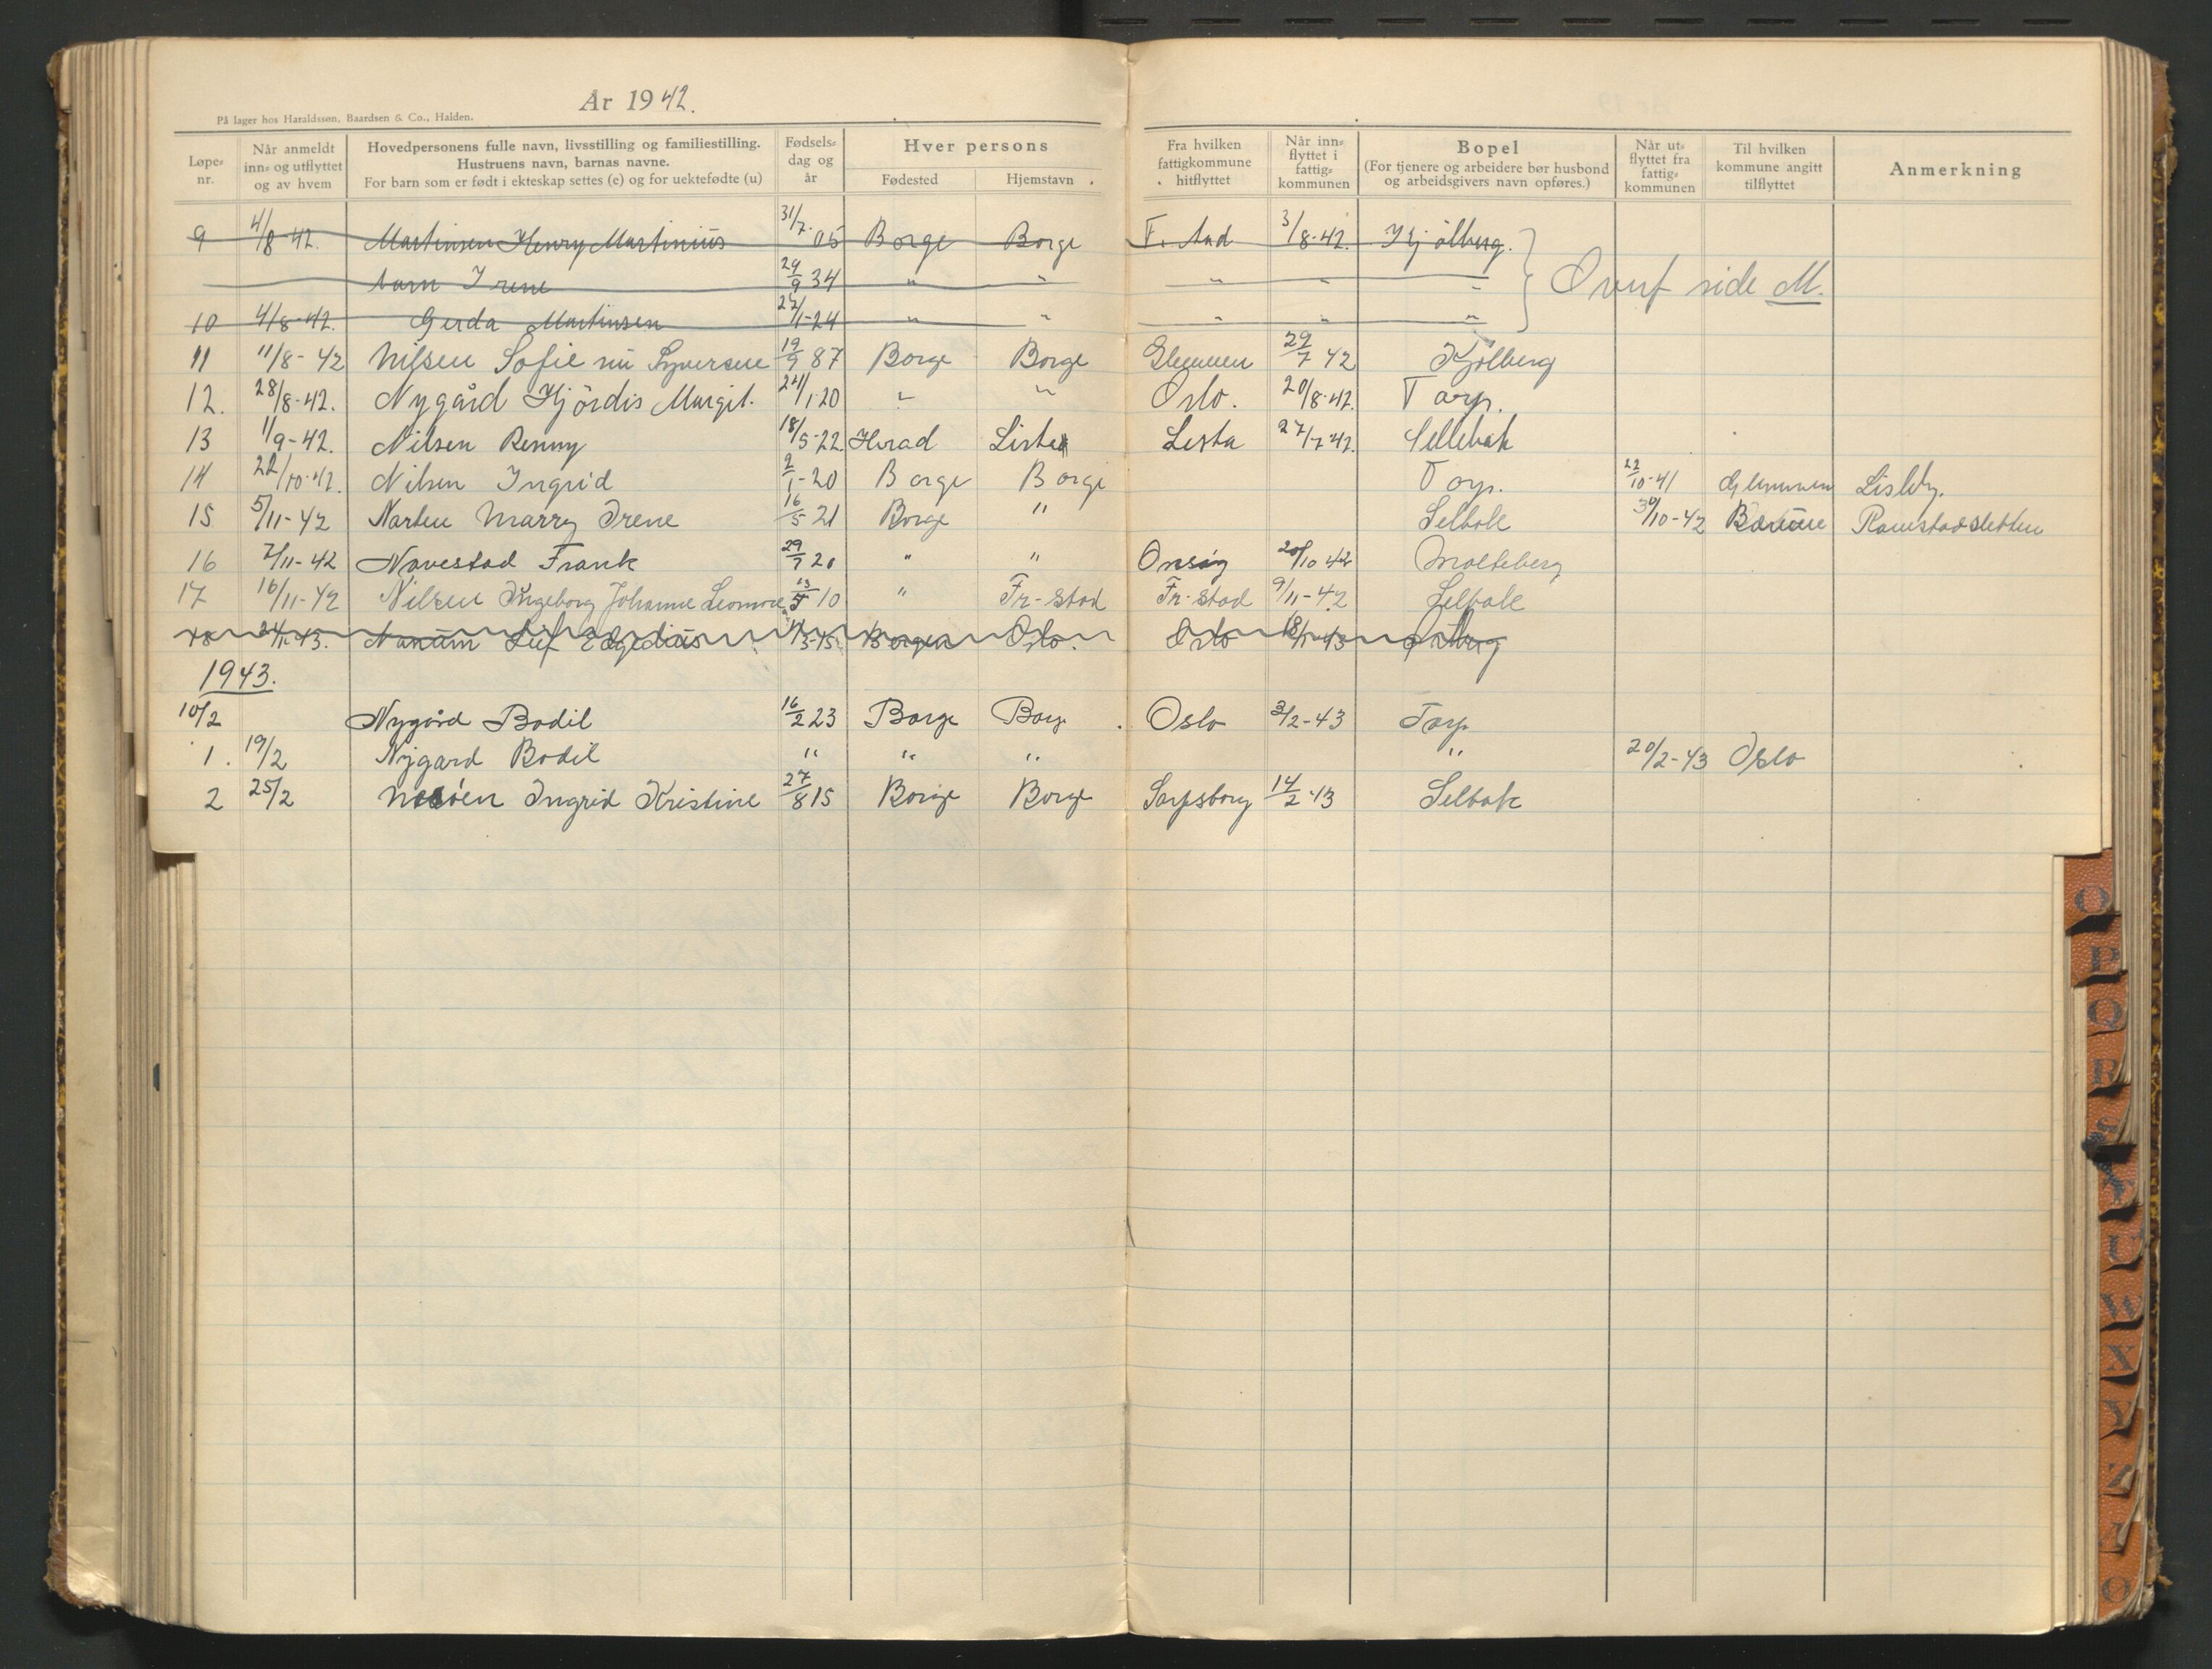 År 1942.
På lager hos Haraldssøn, Baardsen & Co., Halden.
Løpe-nr. Når anmeldt inn- og utflyttet og av hvem Hovedpersonens fulle navn, livsstilling og familiestilling. Hustruens navn, barnas navne. For barn som er født i ekteskap settes (e) og for uektefødte (u) Fødsels-dag og år Hver persons Fødested Hjemstavn Fra hvilken fattigkommune hitflyttet Når inn-flyttet i fattig-kommunen Bopel (For tjenere og arbeidere bør husbond og arbeidsgivers navn opføres.) Når ut-flyttet fra fattig-kommunen Til hvilken kommune angitt tilflyttet Anmerkning
9 4/8-42. Martinsen Henry Martinius 31/7-05 Borge Borge F. stad 3/8-42. Kjølberg.
barn Irene 29/9 34 " " " " "
Overf side M.
10 4/8-42. Gerda Martinsen 27/1-24 " " " " "
11 11/8-42 Nilsen Sofie 19/9 87 Borge Borge Glemmen 29/7 42 Kjølberg
12. 28/8-42. Nygård Hjördis Margit. 24/1-20 " " Oslo. 20/8-42. Torp.
13 11/9-42. Nilsen Renny 18/5-22 Herad Lista Lista 27/7 42. Sellebak
14 22/10-42. Nilsen Ingrid 2/1-20 Borge Borge Torp. 22/10-41 Glemmen Lisleby.
15 5/11-42 Narten Marry Irene 16/5 21 Borge " Selbak 30/10-42 Bærum Ramstadsletten
16 7/11-42 Navestad Frank 29/7 20 " " Onsøy 20/10 42 Molteberg
17 16/11-42 Nilsen Ingeborg Johanne Leonore 13/5 10 " Fr-stad Fr-stad 9/11-42 Selbak
18 24/1-43. Leif Egedius Bergen Oslo. Oslo 18/1-43
1943.
10/2 Nygård Bodil 16/2 23 Borge Borge Oslo 3/2-43 Torp
1. 19/2 Nygard Bodil " " " " 20/2-43 Oslo
2 25/2 Ingrid Kristine 27/8 15 Borge Borge Sarpsborg 14/2-43 Selbak
O
P
Q
R
U
W
X
Ø